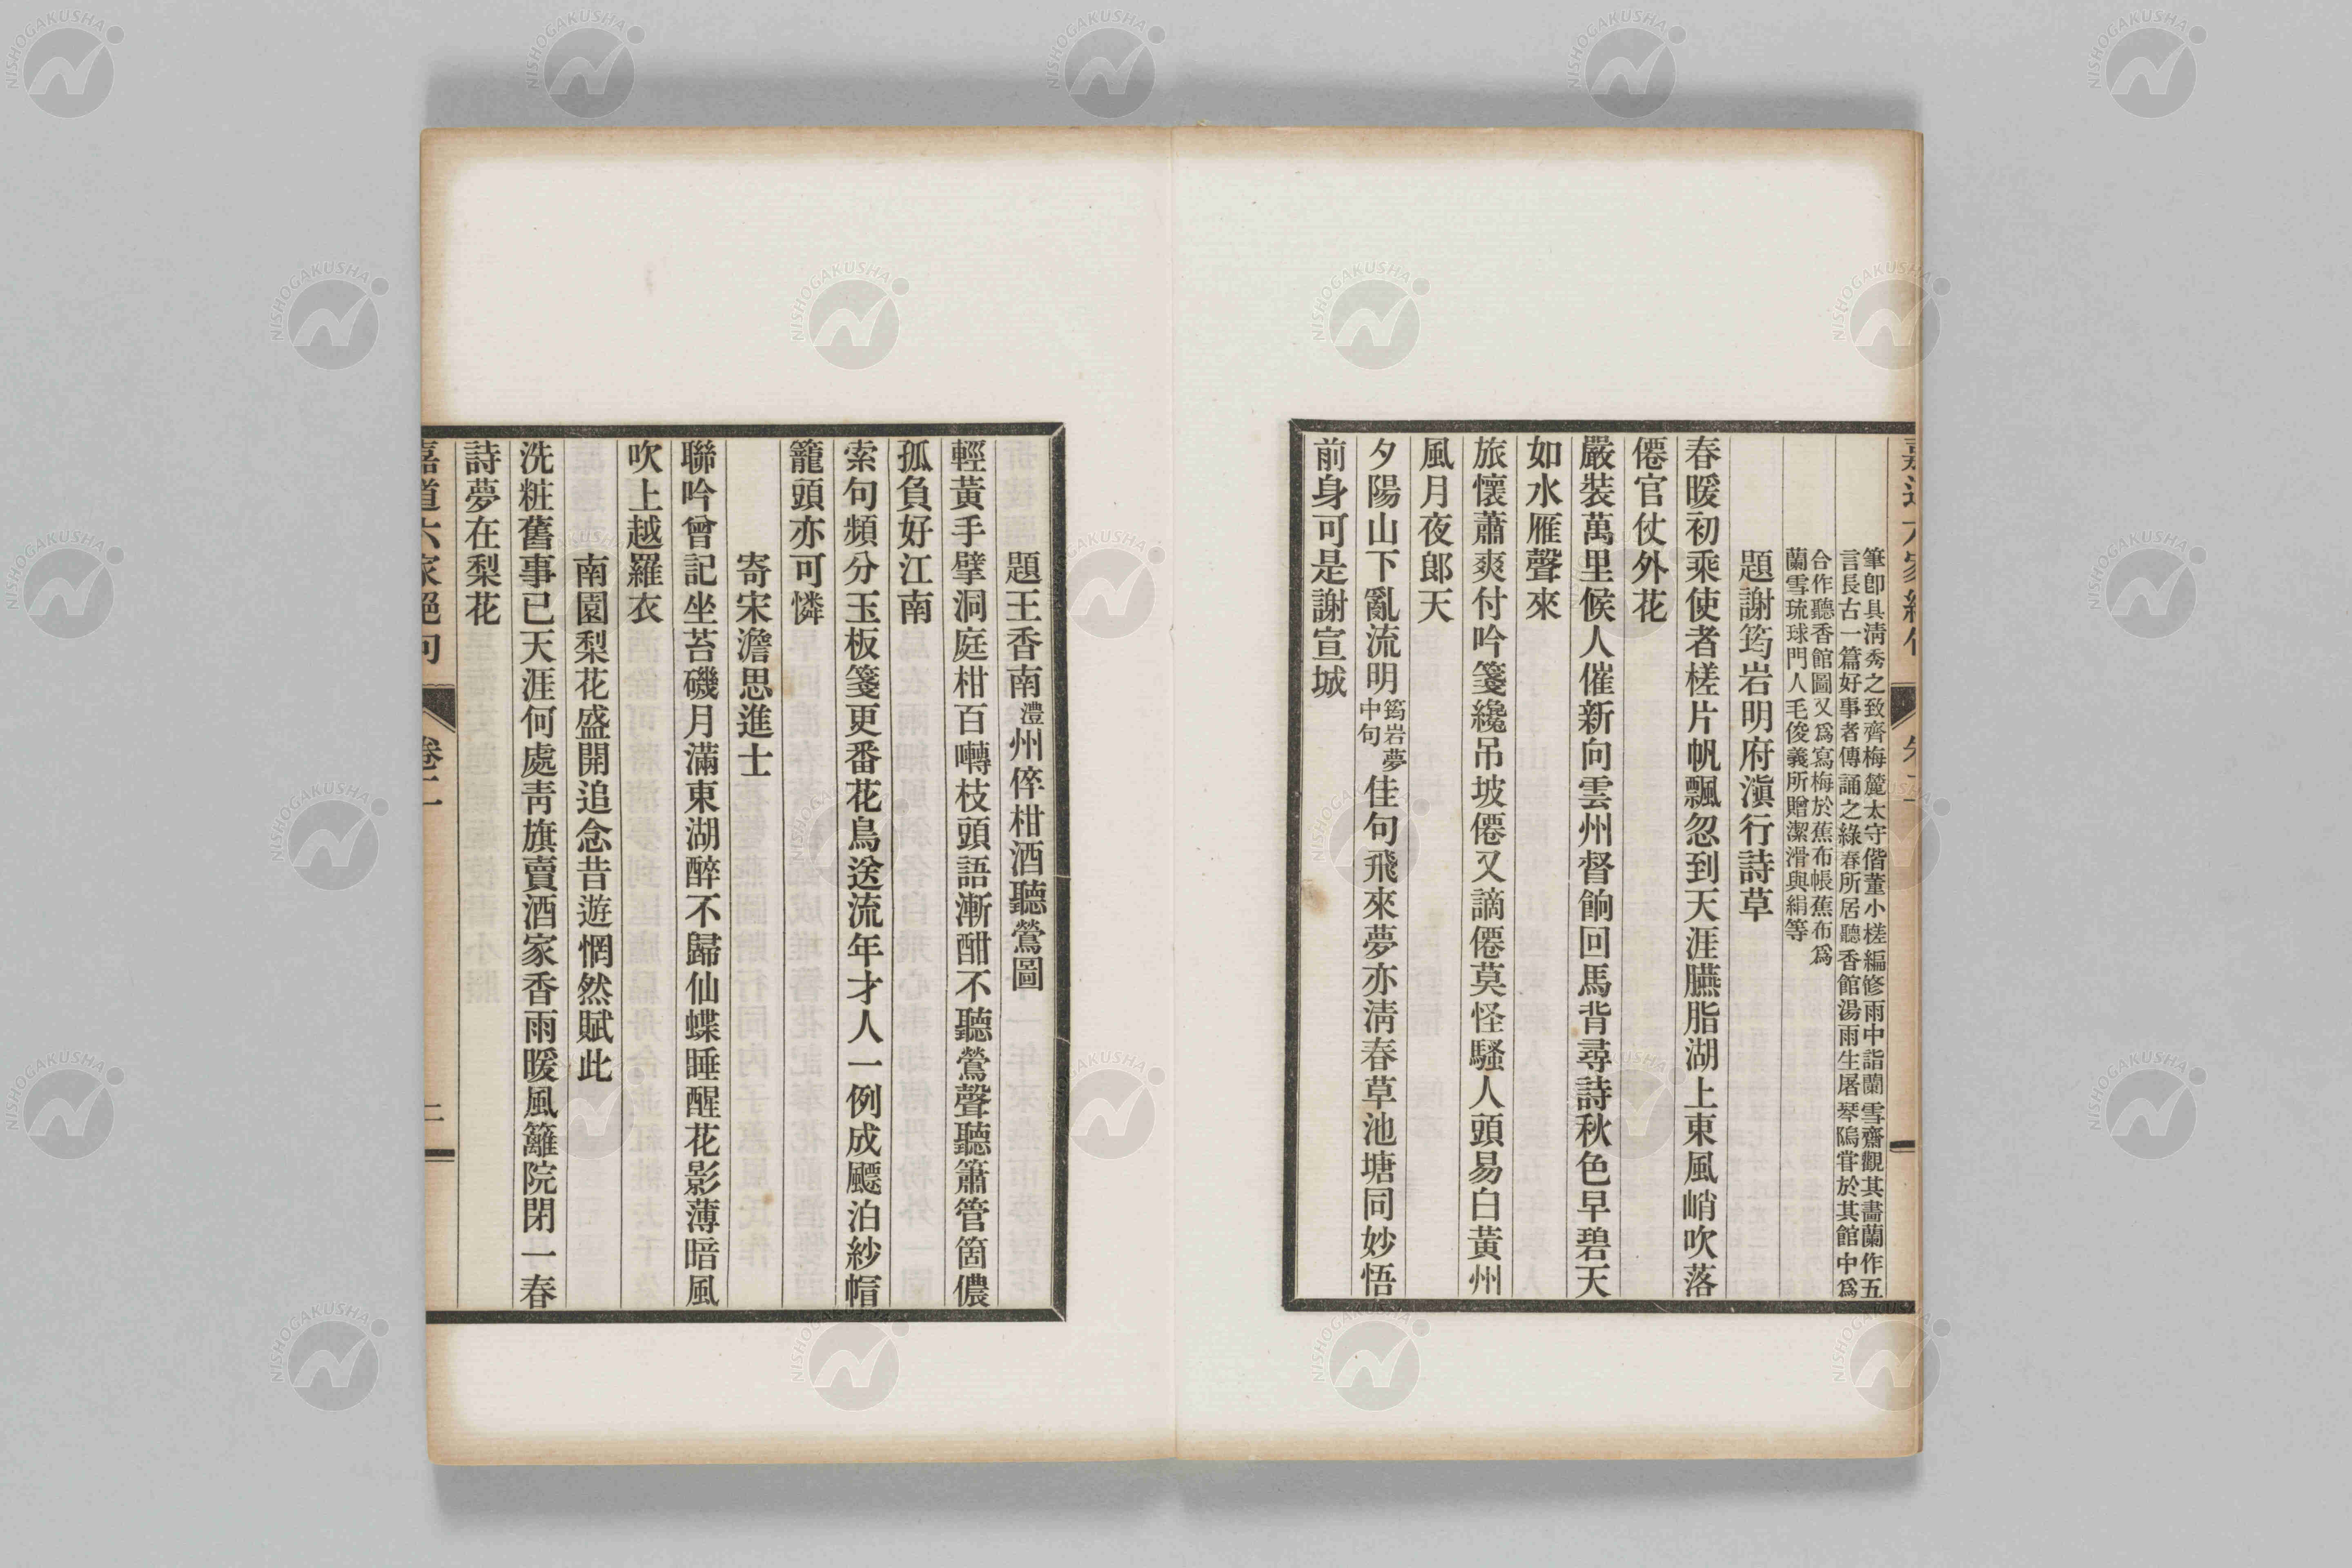 嘉道六家絕句
筆卽具清秀之致齊梅麓太守偕董小槎編修雨中詣蘭雪齋觀其畵蘭作五
言長古一篇好事者傳誦之綠春所居聽香館湯雨生屠琴隖嘗於其館中爲
合作聽香館圖又爲寫梅於蕉布帳蕉布爲
蘭雪琉球門人毛俊義所贈潔滑與絹等
題謝筠岩明府滇行詩草
春暖初乘使者槎片帆飄忽到天涯臙脂湖上東風峭吹落
僊官仗外花
嚴裝萬里候人催新向雲州督餉回馬背尋詩秋色早碧天
如水雁聲來
旅懷蕭爽付吟箋纔吊坡僊又謫僊莫怪騷人頭易白黃州
風月夜郞天
夕陽山下亂流明筠岩夢中句佳句飛來夢亦清春草池塘同妙悟
前身可是謝宣城
題王香南澧州倅柑酒聽鶯圖
輕黃手擘洞庭柑百囀枝頭語漸酣不聽鶯聲聽簫管箇儂
孤負好江南
索句頻分玉板箋更番花鳥送流年才人一例成飃泊紗帽
籠頭亦可憐
寄宋澹思進士
聯吟曾記坐苔磯月滿東湖醉不歸仙蝶睡醒花影薄暗風
吹上越羅衣
南園梨花盛開追念昔遊惘然賦此
洗粧舊事已天涯何處靑旗賣酒家香雨暖風籬院閉一春
詩夢在梨花
嘉道六家絕句
卷二
二
NISHOGAKUSHA